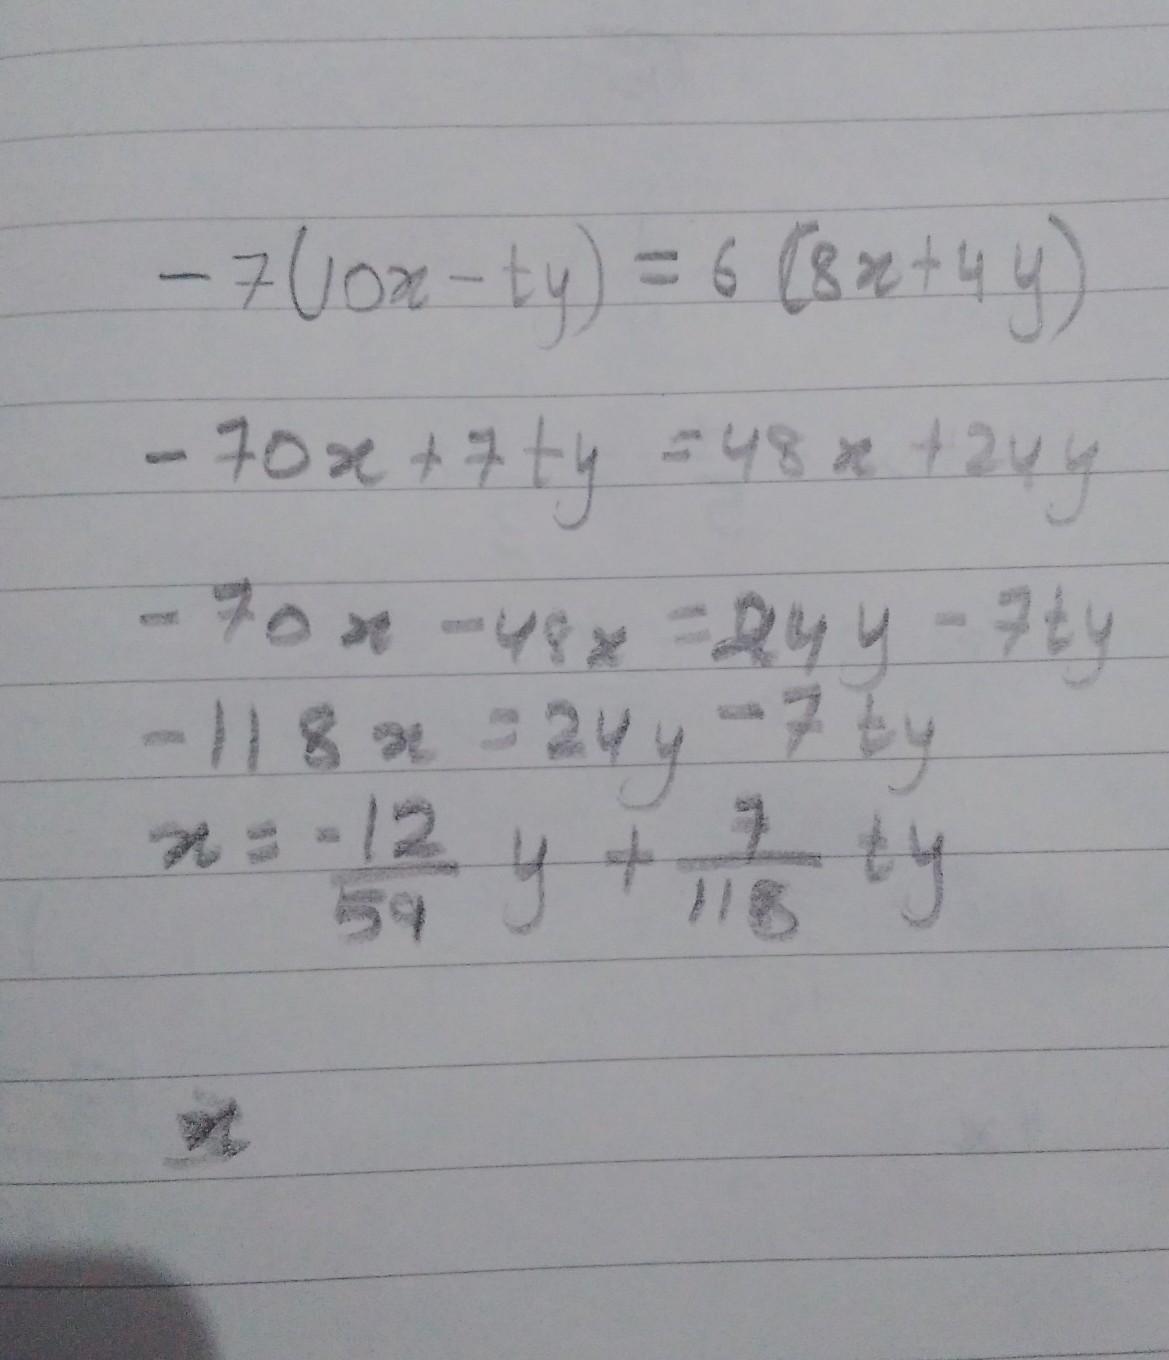 -7(10x-ty) = 6(8x+4y)
-70x+7ty = 48x+24y
-70x-48x = 24y-7ty
-118x = 24y-7ty
x = -12/59 y + 7/118 ty
x